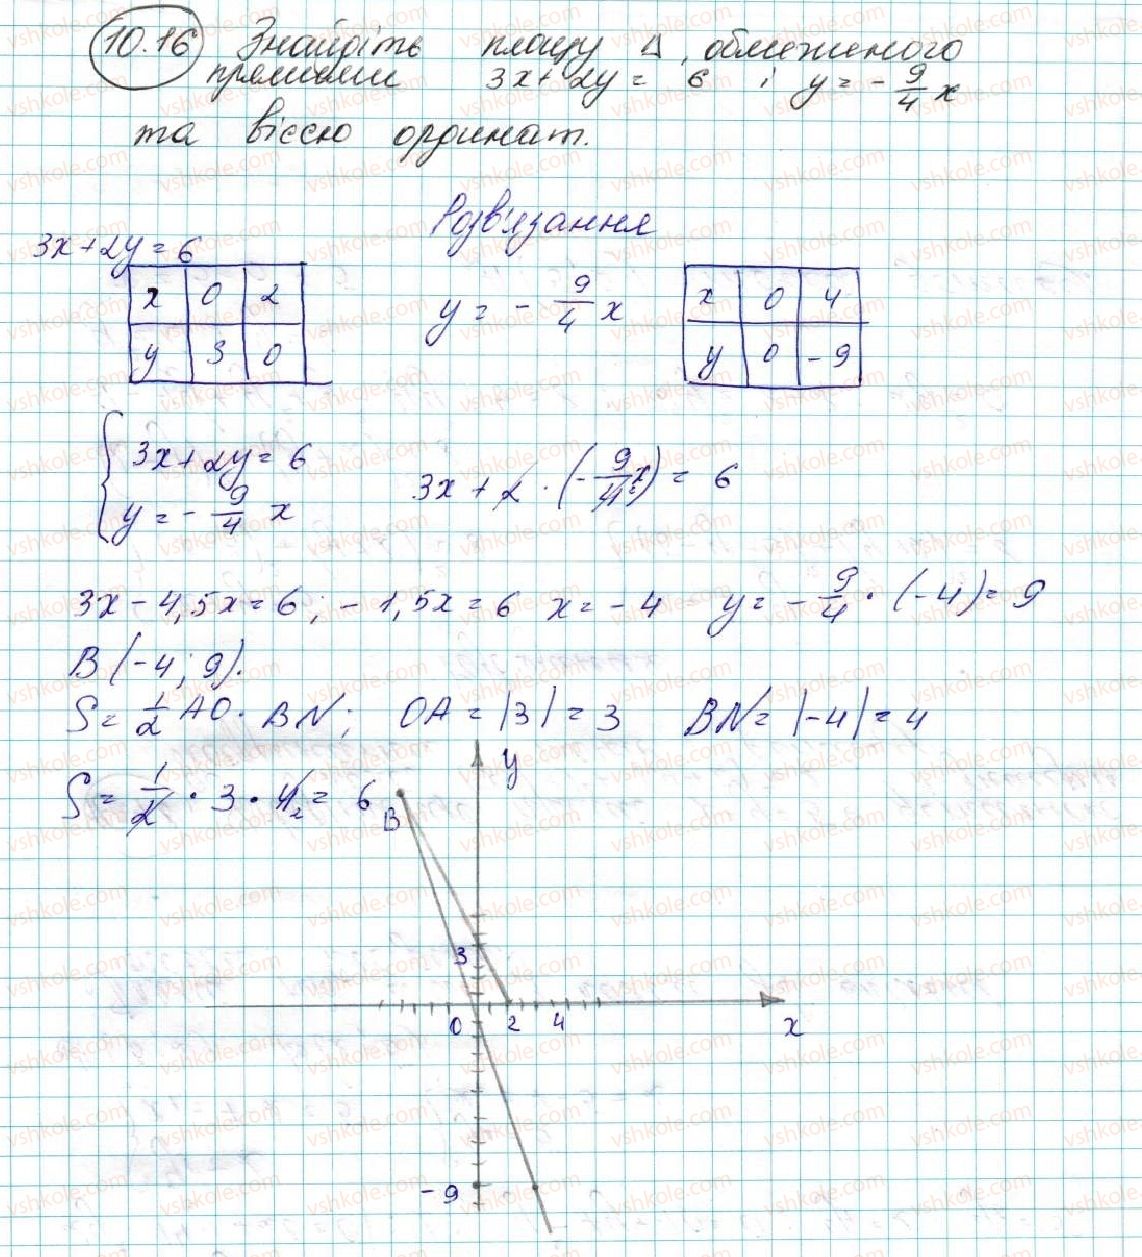 10.16 Знайдіть площу Δ, обмеженого
прямими 3x + 2y = 6 і y = - 9/4 x
та віссю ординат.
Розв'язання
3x + 2y = 6
x 0 2
y 3 0
y = - 9/4 x
x 0 4
y 0 -9
{ 3x + 2y = 6
y = - 9/4 x
3x + 2 · (- 9/4 x) = 6
3x - 4,5x = 6; -1,5x = 6 x = -4 y = - 9/4 · (-4) = 9
B (-4; 9).
S = 1/2 AO · BN; OA = |3| = 3 BN = |-4| = 4
S = 1/2 · 3 · 4 2 = 6
y
B
3
0 2 4
x
-9
vshkole.com